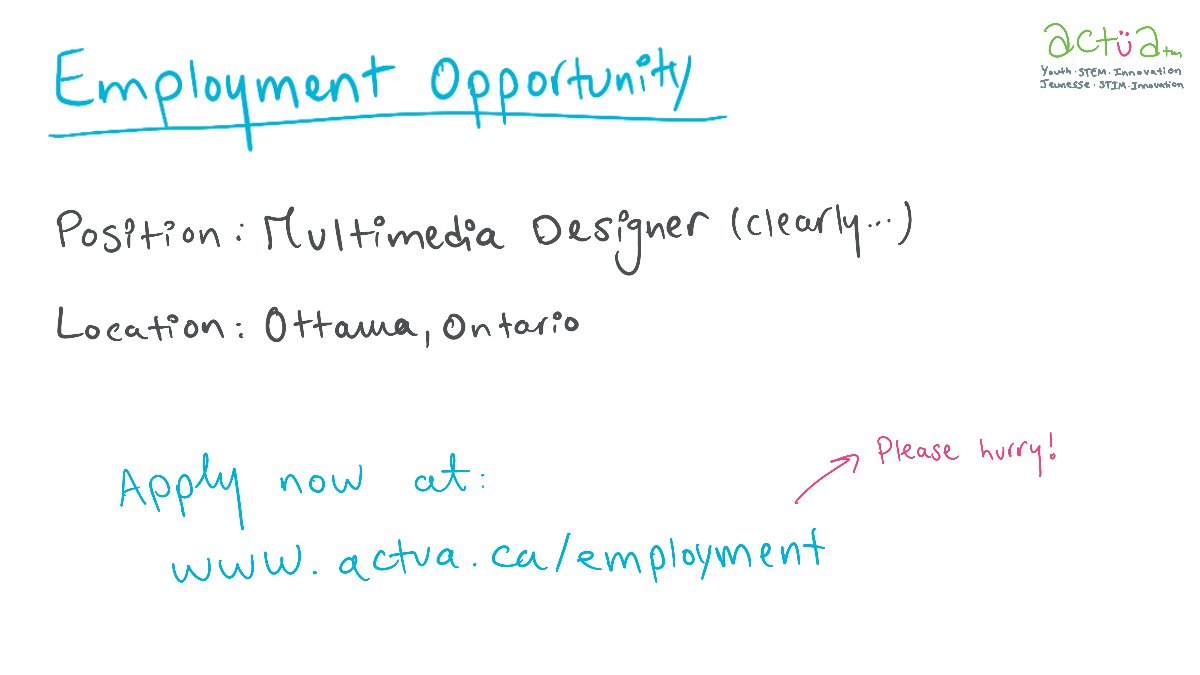 actüa tm
Youth · STEM · Innovation
Jeunesse · STIM · Innovation
Employment Opportunity
Position: Multimedia Designer (clearly...)
Location: Ottawa, Ontario
Please hurry!
Apply now at:
www.actua.ca/employment